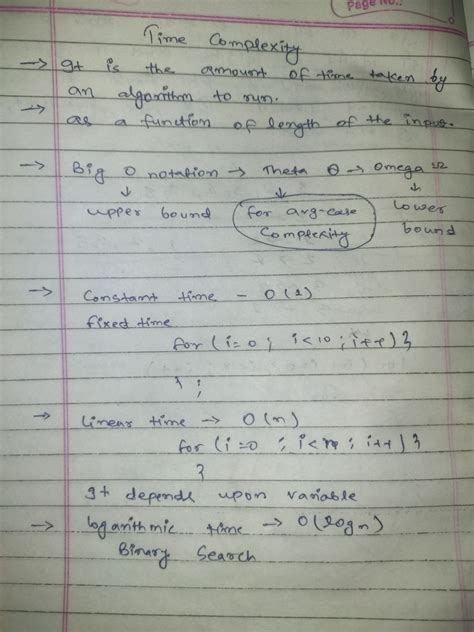 Page No.:
Time Complexity
→ It is the amount of time taken by
an algorithm to run.
→ as a function of length of the input.
→ Big O notation → Theta θ → Omega Ω
↓ ↓ ↓
upper bound for avg-case lower
Complexity bound
→ Constant time - O(1)
fixed time
for (i=0 ; i<10 ; i++) }
} ;
→ linear time → O(n)
for (i=0 ; i<n ; i++) }
}
It depends upon variable
→ logarithmic time → O(logn)
Binary Search